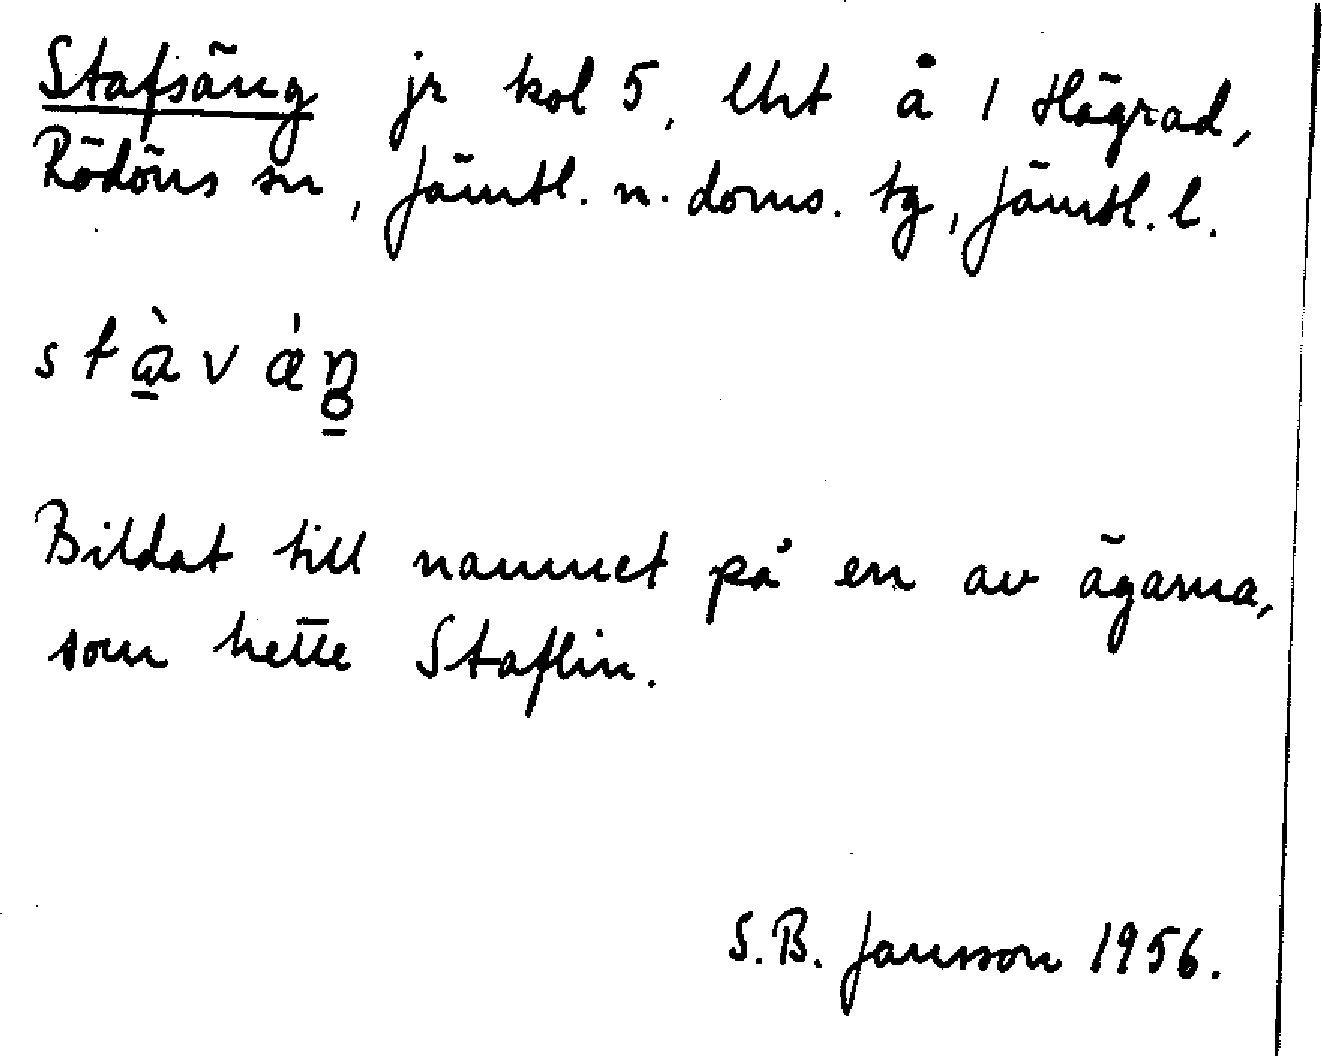 Stafsäng jr kol 5, lht å 1 Högrad,
Rödöns sn, Jämtl. n. doms. tg, Jämtl. l.
s t à̱ v ǽ ŋ̱
Bildat till namnet på en av ägarna,
som hette Staflin.
S.B. Jansson 1956.